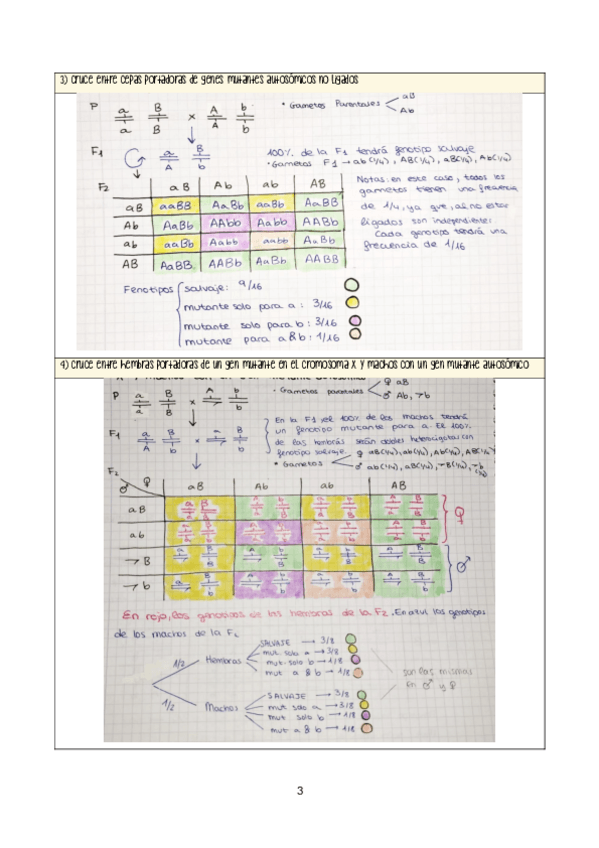 3) Cruce entre cepas portadoras de genes mutantes autosómicos no ligados
P a/a B/B x A/A b/b
• Gametos Parentales < aB
Ab
F1 a/A B/b
100% de la F1 tendrá genotipo salvaje
• Gametos F1 → ab(1/4), AB(1/4), aB(1/4), Ab(1/4)
F2 aB Ab ab AB
aB aaBB AaBb aaBb AaBB
Ab AaBb AAbb Aabb AABb
ab aaBb Aabb aabb AaBb
AB AaBB AABb AaBb AABB
Notas: en este caso, todos los
gametos tienen una frecuencia
de 1/4, ya que, al no estar
ligados son independientes:
Cada genotipo tendrá una
frecuencia de 1/16
Fenotipos { salvaje: 9/16
mutante solo para a: 3/16
mutante solo para b: 3/16
mutante para a & b: 1/16
4) Cruce entre hembras portadoras de un gen mutante en el cromosoma X y machos con un gen mutante autosómico
P a/a B/B x A/¬ b/b
• Gametos parentales < ♀ aB
♂ Ab, ¬b
F1 a/A B/b x a/¬ B/b
En la F1, el 100% de los machos tendrá
un fenotipo mutante para a. El 100%
de las hembras serán dobles heterocigotas con
fenotipo salvaje.
♀ aB(1/4), ab(1/4), Ab(1/4), AB(1/4)
• Gametos < ♂ ab(1/4), aB(1/4), ¬B(1/4), ¬b(1/4)
F2
♂ ♀ aB Ab ab AB
aB
ab
♀
¬B
¬b
♂
En rojo, los genotipos de las hembras de la F2. En azul los genotipos
de los machos de la F2
1/2 Hembras
SALVAJE → 3/8
mut solo a → 3/8
mut solo b → 1/8
mut a & b → 1/8
son las mismas
en ♂ y ♀
1/2 Machos
SALVAJE → 3/8
mut solo a → 3/8
mut solo b → 1/8
mut a & b → 1/8
3